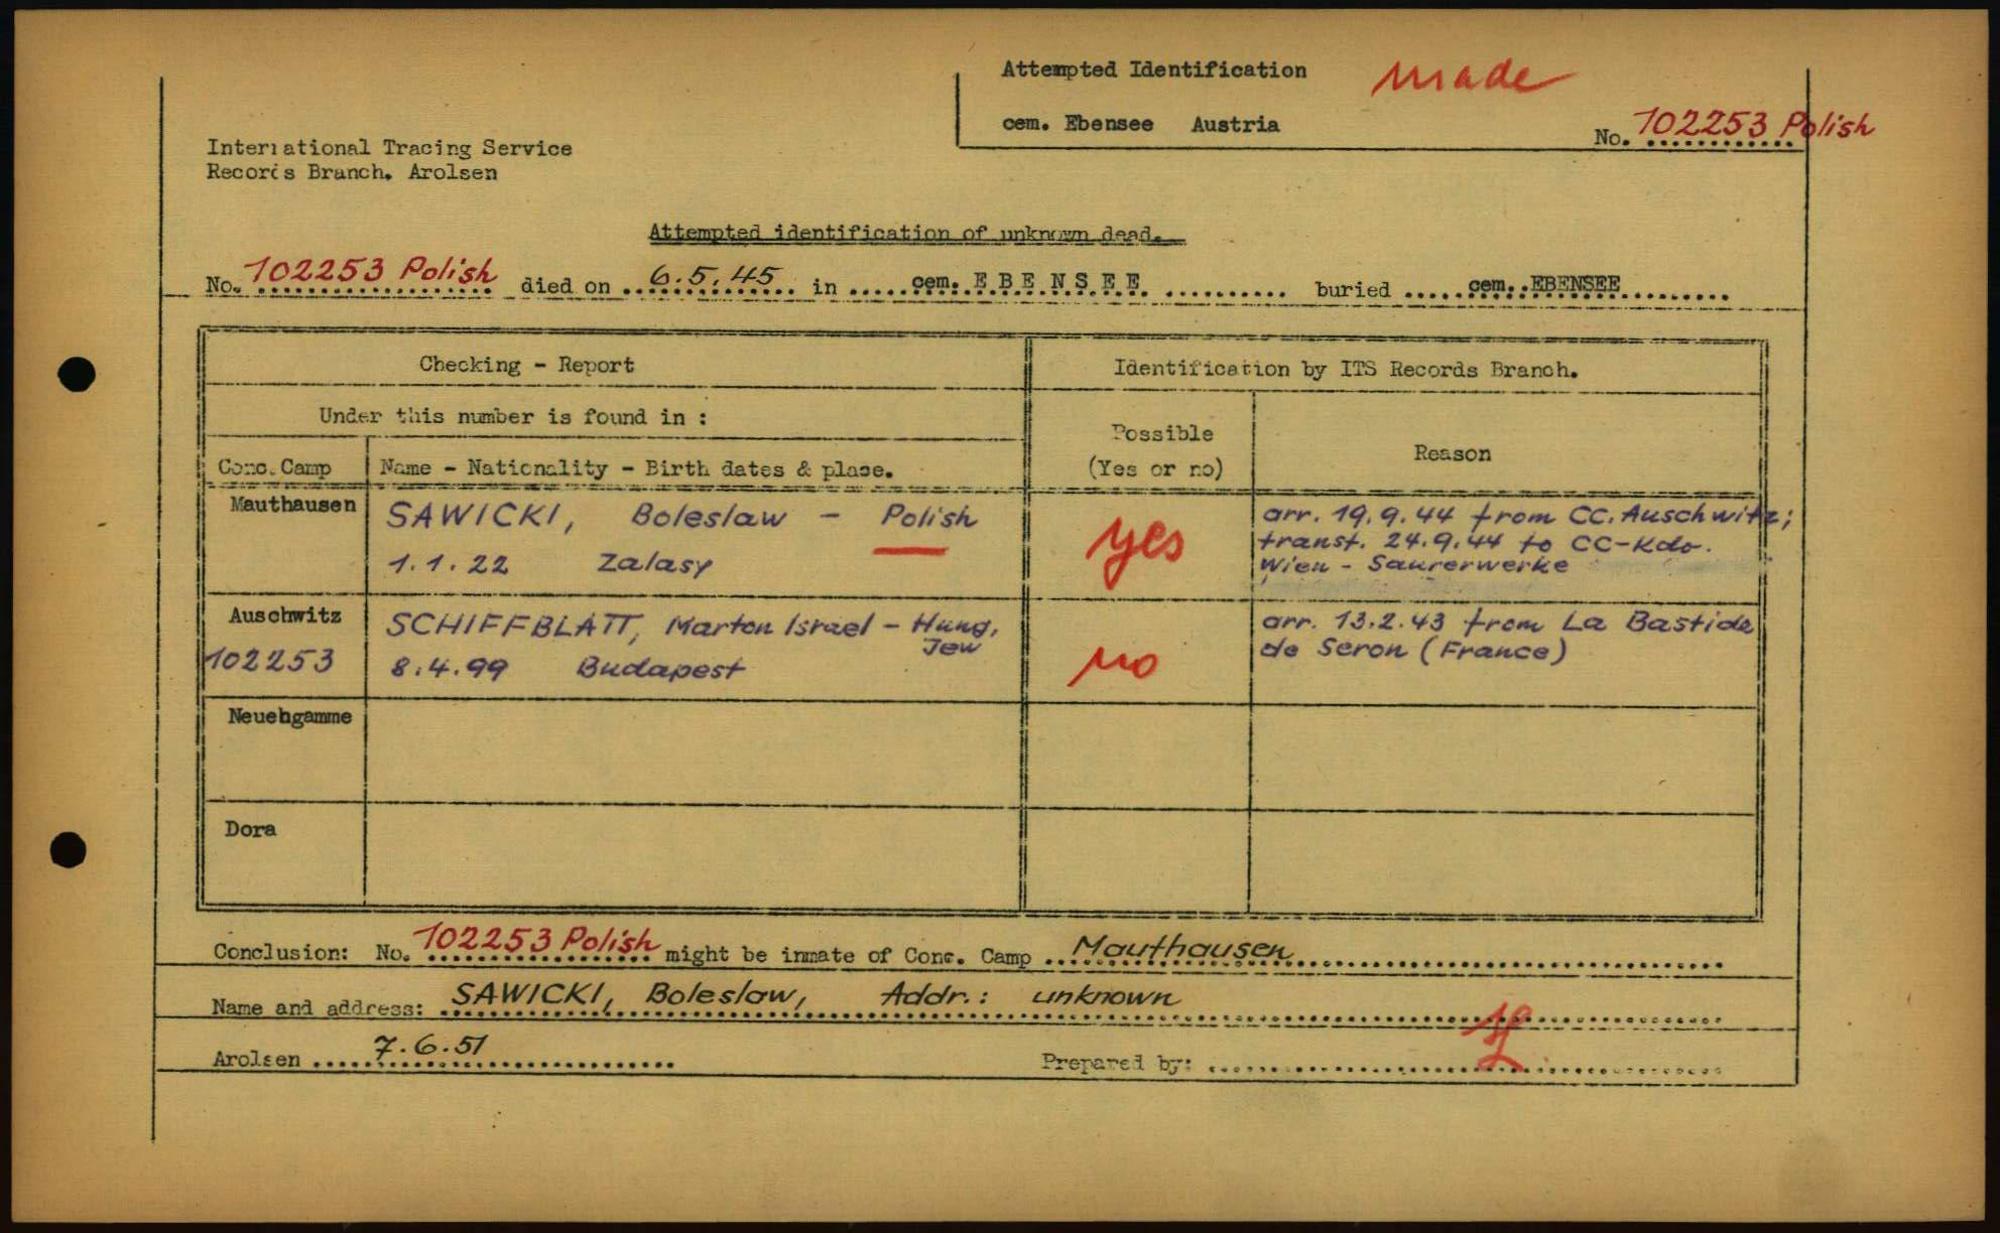 Attempted Identification made
cem. Ebensee Austria
No. 102253 Polish
International Tracing Service
Records Branch. Arolsen
Attempted identification of unknown dead.
No. 102253 Polish died on 6.5.45 in cem. EBENSEE buried cem. EBENSEE
Checking - Report
Identification by ITS Records Branch.
Under this number is found in :
Possible
(Yes or no)
Reason
Conc. Camp
Name - Nationality - Birth dates & place.
Mauthausen
SAWICKI, Boleslaw - Polish
1.1.22 Zalasy
yes
arr. 19.9.44 from CC. Auschwitz;
transf. 24.9.44 to CC-Kdo.
Wien - Saurerwerke
Auschwitz
102253
SCHIFFBLATT, Marton Israel - Hung,
Jew
8.4.99 Budapest
no
arr. 13.2.43 from La Bastide
de Seron (France)
Neuengamme
Dora
Conclusion: No. 102253 Polish might be inmate of Conc. Camp Mauthausen
Name and address: SAWICKI, Boleslaw, Addr.: unknown
Arolsen 7.6.51
Prepared by: